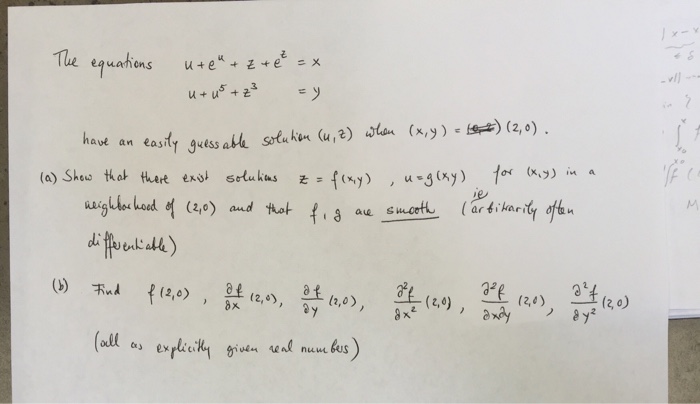 The equations u + e^u + z + e^z = x
u + u^5 + z^3 = y
have an easily guessable solution (u, z) when (x, y) = (2, 0).
(a) Show that there exist solutions z = f(x,y) , u = g(x,y) for (x,y) in a
neighborhood of (2,0) and that f, g are smooth (ie arbitrarily often
differentiable)
(b) Find f(2,0) , ∂f/∂x (2,0), ∂f/∂y (2,0), ∂²f/∂x² (2,0) , ∂²f/∂x∂y (2,0), ∂²f/∂y² (2,0)
(all as explicitly given real numbers)